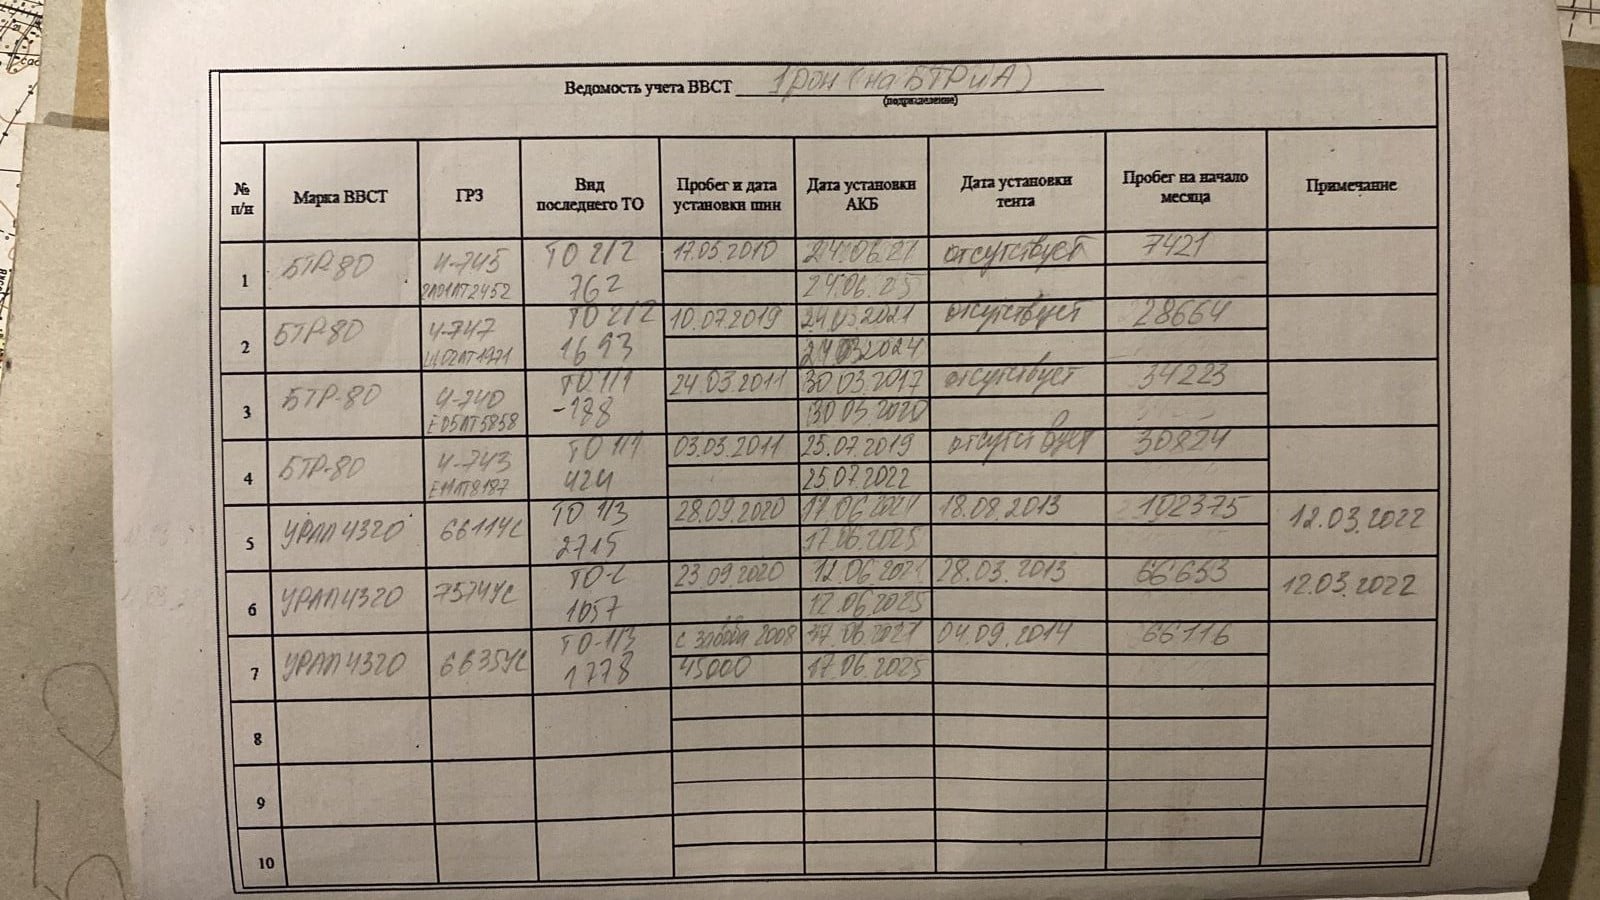 Ведомость учета ВВСТ 1 рон (на БТР и А)
(подразделение)
№ п/н Марка ВВСТ ГРЗ Вид последнего ТО Пробег и дата установки шин Дата установки АКБ Дата установки тента Пробег на начало месяца Примечание
1 БТР-80 Ч-745 ТО 2/2 17.05.2010 24.06.21 отсутствует 7421
762 24.06.25
2 БТР-80 Ч-747 ТО 2/2 10.07.2019 24.03.2021 отсутствует 28664
1693 24.03.2024
3 БТР-80 Ч-740 ТО 1/1 24.03.2011 30.03.2017 отсутствует 34223
Е05АТ5858 -188 30.03.2020
4 БТР-80 Ч-743 ТО 1/1 03.03.2011 25.07.2019 отсутствует 30824
Е11АТ8187 424 25.07.2022
5 УРАЛ 4320 6611УС ТО 1/3 28.09.2020 17.06.2021 18.08.2013 102375 12.03.2022
2715 17.06.2025
6 УРАЛ 4320 7574УС ТО-2 23.09.2020 12.06.2021 28.03.2013 66653 12.03.2022
1057 12.06.2025
7 УРАЛ 4320 6635УС ТО-1/3 с завода 2008 17.06.2021 04.09.2014 66116
1778 45000 17.06.2025
8
9
10